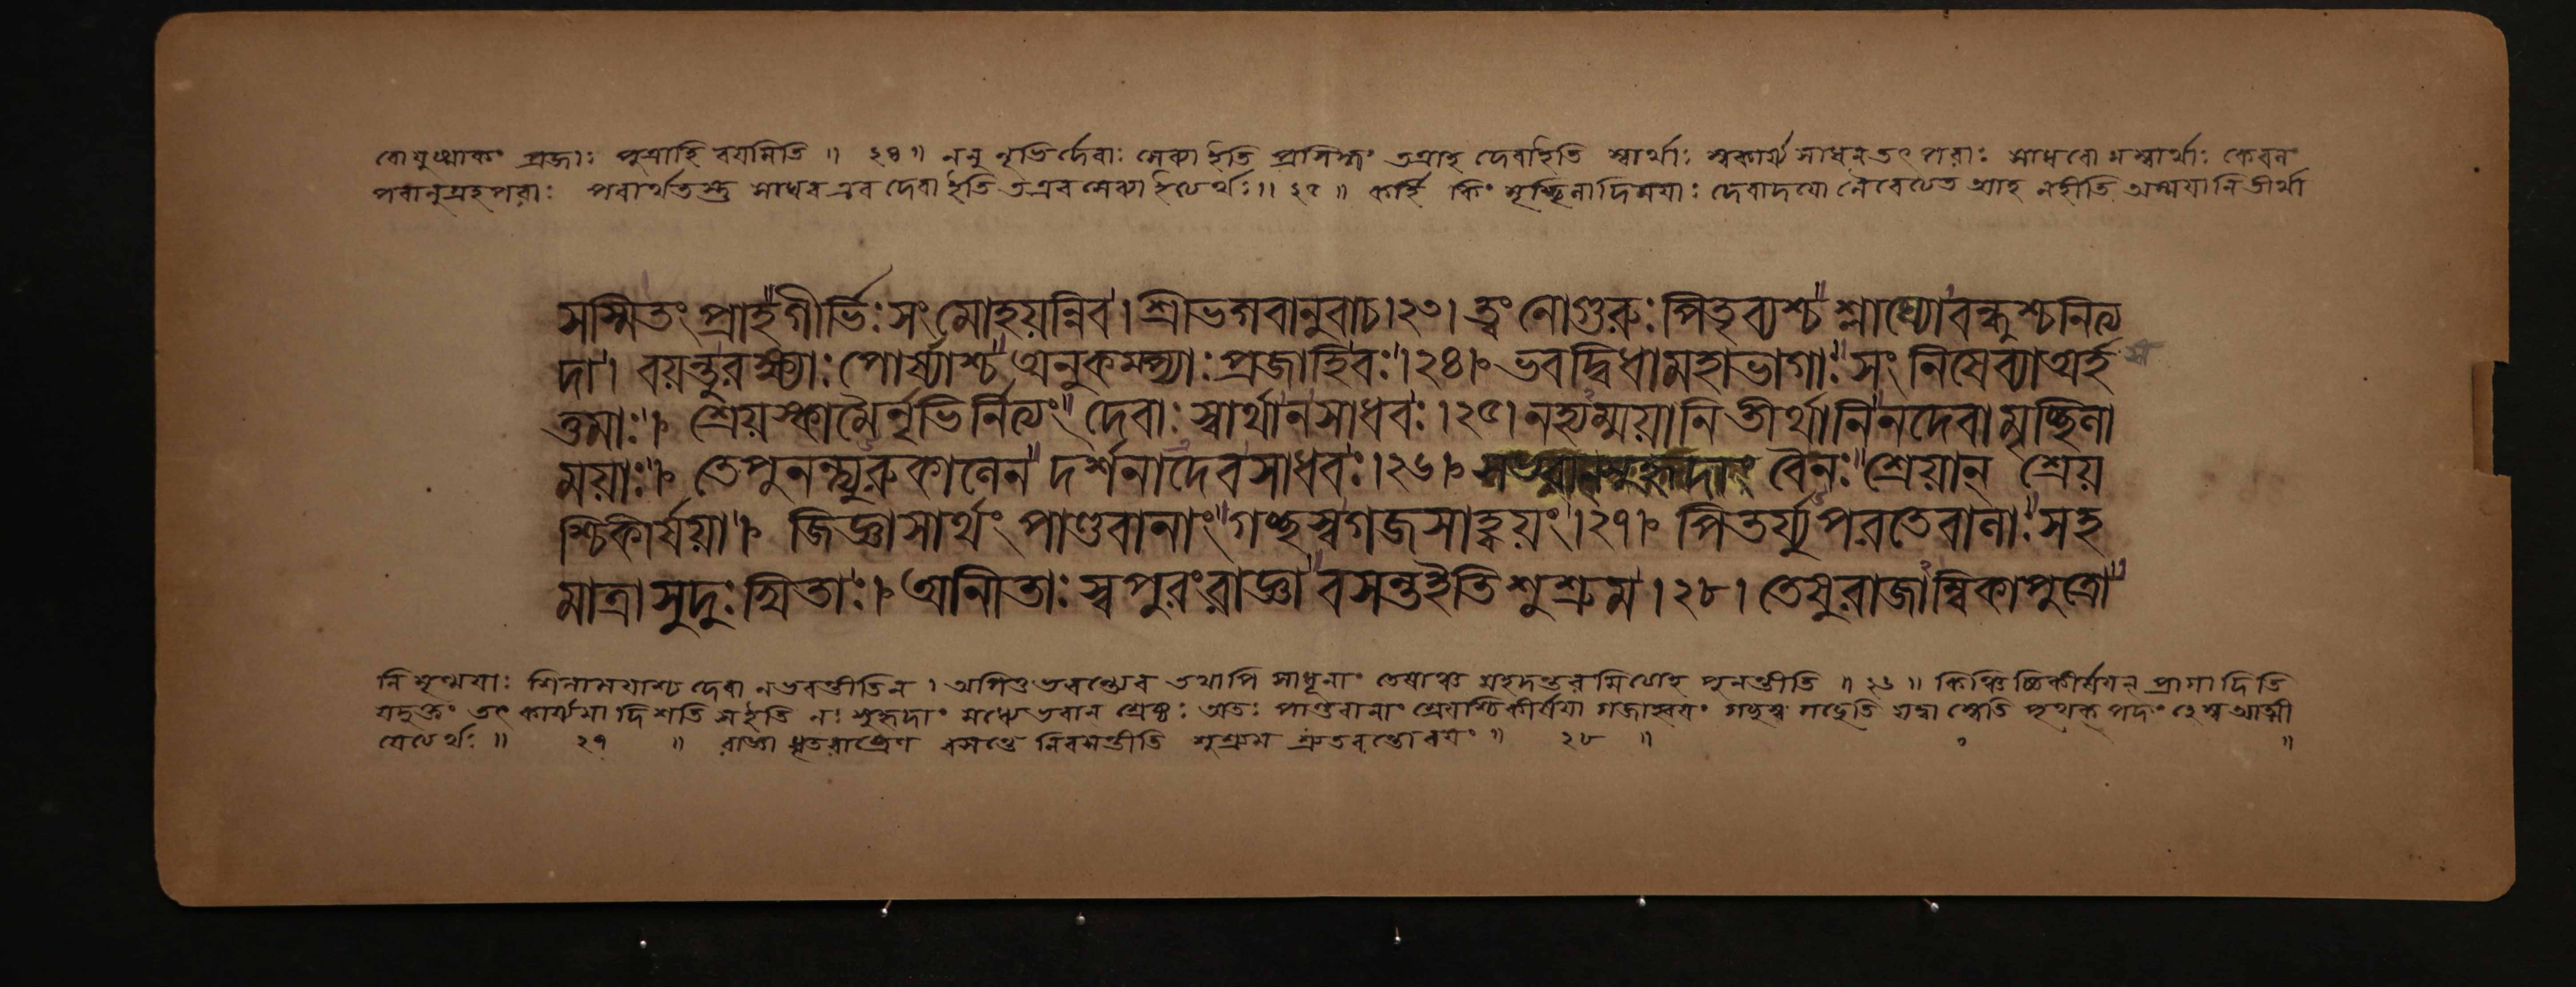 বো যুষ্মাকং প্রজাঃ পুত্রাহি বয়মিতি ॥ ২৪ ॥ ননু নৃভির্দেবাঃ সেব্যা ইতি প্রসিদ্ধং তত্রাহ দেবাইতি স্বার্থাঃ স্বকার্য্য সাধন তৎ পরাঃ সাধবো নস্বার্থাঃ কেবলং
পরানুগ্রহ পরাঃ পরার্থতস্তু সাধব এব দেবা ইতি তএব সেব্যা ইত্যর্থঃ ॥ ২৫ ॥ কিং মৃচ্ছিলাদিময়াঃ দেবাদয়ো নৈবেত্যত আহ নহীতি অম্ময়ানি তীর্থা
সস্মিতং প্রাহ গীর্ভিঃ সং মোহয়ন্নিব। শ্রীভগবানুবাচ।২৩। ত্বং নোগুরুঃ পিতৃব্যশ্চ শ্লাঘ্যোবন্ধুশ্চনিত্য
দা। বয়ন্তুরক্ষ্যাঃ পোষ্যাশ্চ অনুকম্প্যাঃ প্রজাহিবঃ।২৪। ভবদ্বিধামহাভাগাঃ সং নিষেব্যাঅর্হ স
ত্তমাঃ। শ্রেয়স্কামৈর্নৃভির্নিত্যং দেবাঃ স্বার্থানসাধবঃ।২৫। নহ্যম্ময়ানি তীর্থানিনদেবামৃচ্ছিলা
ময়াঃ। তেপুনন্ত্যুরুকালেন দর্শনাদেবসাধবঃ।২৬। সভবান্সুহৃদাং বৈনঃ শ্রেয়ান্ শ্রেয়
শ্চিকীর্ষয়া। জিজ্ঞাসার্থং পাণ্ডবানাং গচ্ছস্বগজসাহ্বয়ং।২৭। পিতর্য্যুপরতেবালাঃ সহ
মাত্রা সুদুঃখিতাঃ। আনীতাঃ স্বপুরংরাজ্ঞা বসন্তইতি শুশ্রুম।২৮। তেষুরাজাম্বিকাপুত্রো
নি মৃণ্ময়াঃ শিলাময়াশ্চ দেবা নভবন্তীতিন। অপিতু ভবন্ত্যেব তথাপি সাধূনাং তেষাঞ্চ মহদন্তরমিত্যাহ পুনন্তীতি ॥ ২৬ ॥
যদুক্তং তৎ কার্য্যমাদিশতি সইতি নঃ সুহৃদাং মধ্যে ভবান্ শ্রেষ্ঠঃ অতঃ পাণ্ডবানাং শ্রেয়শ্চিকীর্ষয়া গজাহ্বয়ং গচ্ছস্ব গচ্ছেতি যদ্বা স্বেতি পৃথক্ পদং হে স্ব আত্মী
য়েত্যর্থঃ ॥ ২৭ ॥ রাজ্ঞা ধৃতরাষ্ট্রেণ বসন্তে নিবসন্তীতি শুশ্রুম শ্রুতবন্তো বয়ং ॥ ২৮ ॥ ০ ॥